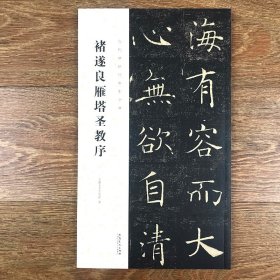 褚遂良雁塔圣教序
海有容而大
心無欲自清